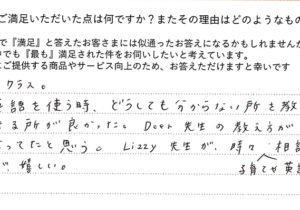 ご満足いただいた点は何ですか？またその理由はどのようなもの
で『満足』と答えたお客さまには似通ったお答えになるかもしれませんが
中でも『最も』満足された件をお伺いしたいと考えています。
にご提供する商品やサービス向上のため、お答えただけますと幸いです
クラス。
語を使う時、どうしても分からない所を教
る所が良かった。Doer 先生の教え方が
ってたと思う。Lizzy 先生が、時々相談
が、嬉しい。
子育てや英